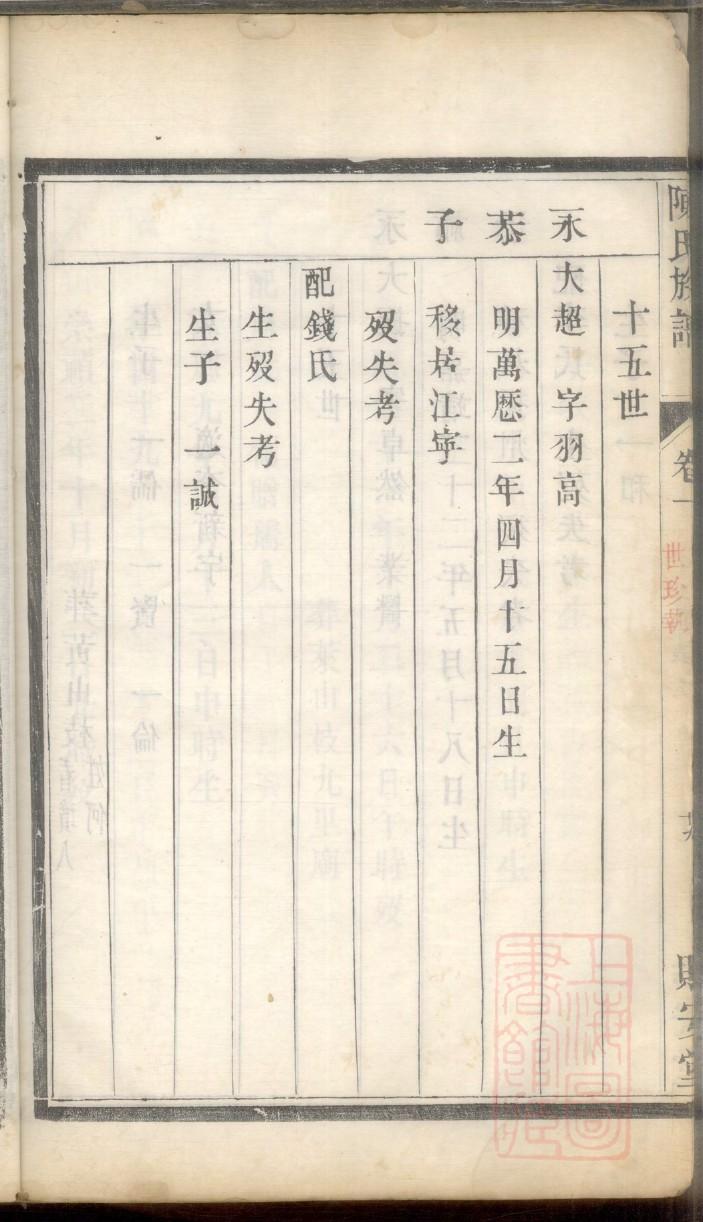 陳氏族譜
卷一
世珍執
十五世
永恭子
大超 字羽高
明萬厯二年四月十五日生
移居江寧
歿失考
配錢氏
生歿失考
生子 一誠
上海圖書館藏